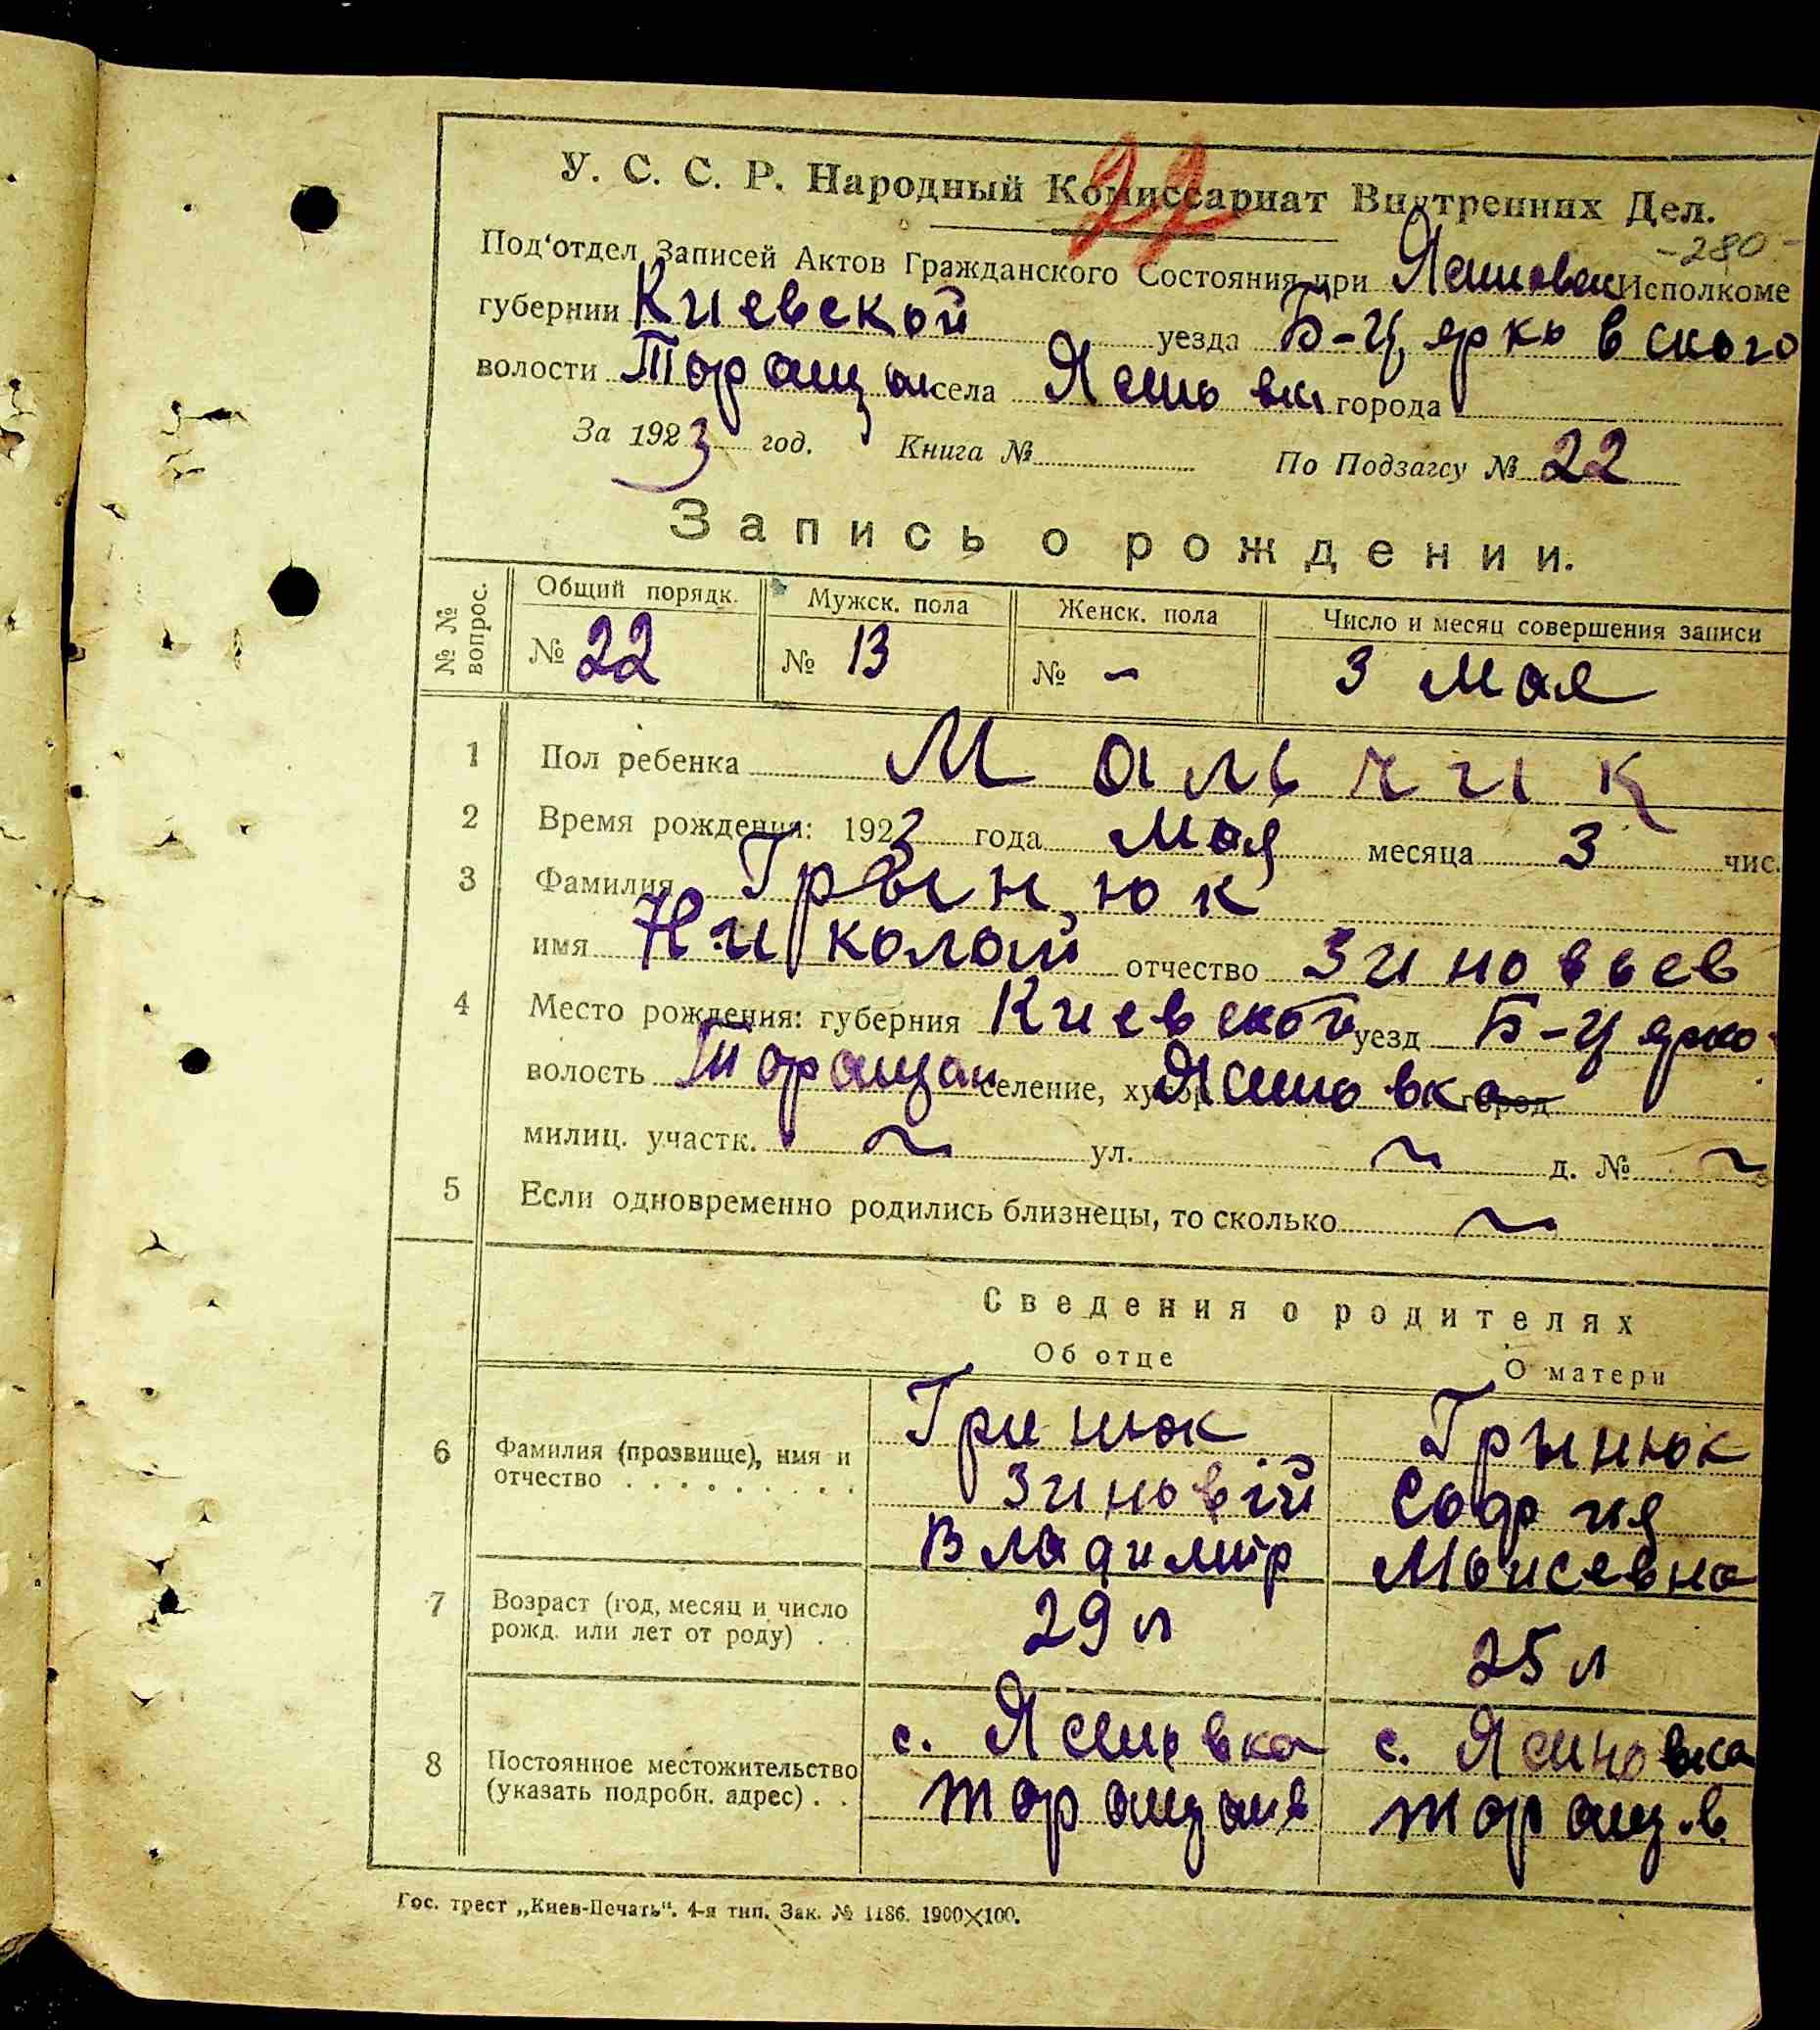 22
У. С. С. Р. Народный Комиссариат Внутренних Дел.
-280-
Под‘отдел Записей Актов Гражданского Состояния при Исполкоме
губернии Киевской уезда Б-Цярковского
волости Таращан села Ясиновки города
За 1923 год. Книга № По Подзагсу № 22
Запись о рождении.
№ № вопрос. Общий порядк. Мужск. пола Женск. пола Число и месяц совершения записи
№ 22 № 13 № - 3 Мая
1 Пол ребенка Мальчик
2 Время рождения: 1923 года Мая месяца 3 чис.
3 Фамилия Грынюк
имя Николай отчество Зиновьев
4 Место рождения: губерния Киевской уезд Б-Цярко
волость Таращан селение, хутор Ясиновка город
милиц. участк. ~ ул. ~ д. № ~
5 Если одновременно родились близнецы, то сколько ~
Сведения о родителях
Об отце О матери
6 Фамилия (прозвище), имя и отчество Гринюк Грынюк
Зиновій София
Владимир Моисевна
7 Возраст (год, месяц и число рожд. или лет от роду) 29 л 25 л
8 Постоянное местожительство (указать подробн. адрес) с. Ясиновка с. Ясиновка
Таращ.в.
Гос. трест „Киев-Печать“. 4-я тип. Зак. № 1186. 1900×100.